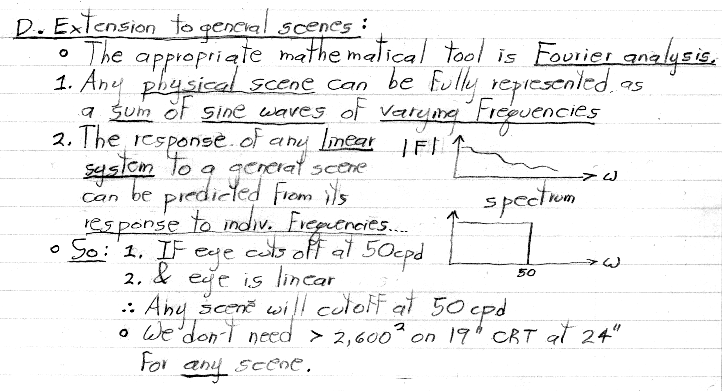 D. Extension to general scenes:
o The appropriate mathematical tool is Fourier analysis.
1. Any physical scene can be fully represented as
a sum of sine waves of varying frequencies
2. The response of any linear |F|
system to a general scene ω
can be predicted from its spectrum
response to indiv. frequencies....
o So: 1. If eye cuts off at 50cpd ω
2. & eye is linear 50
∴ Any scene will cutoff at 50 cpd
o We don't need > 2,600² on 19" CRT at 24"
For any scene.